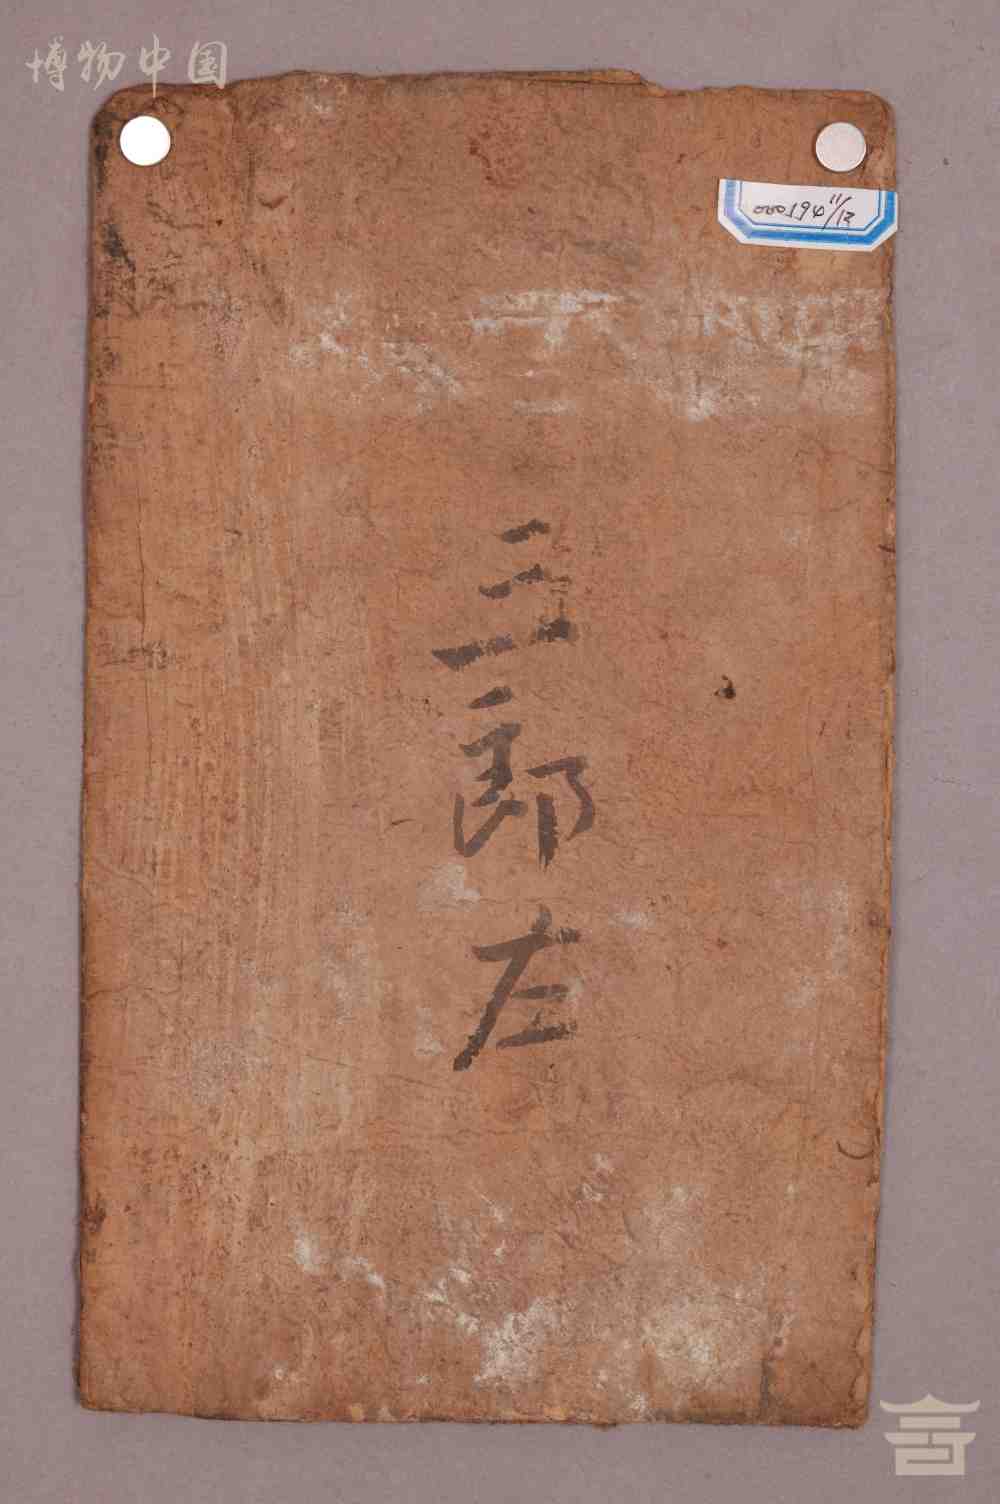 博物中国
000194 11/12
三郎左